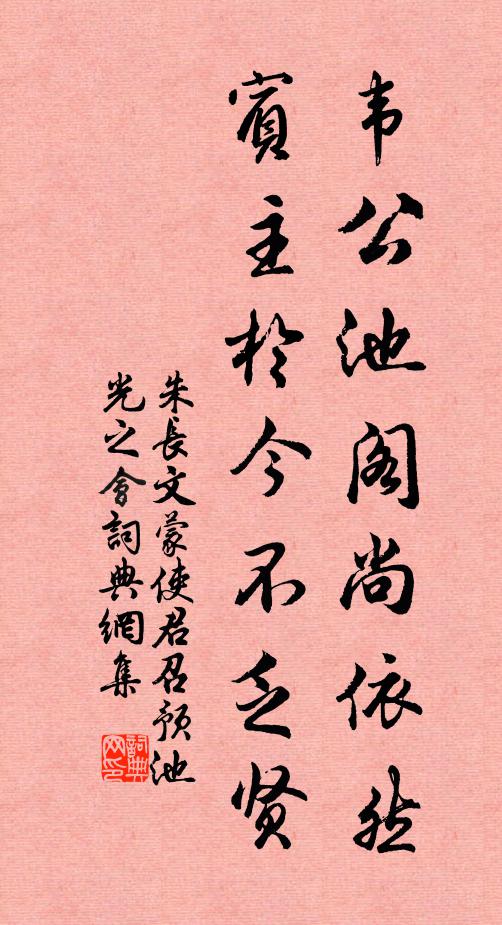 韦公池阁尚依然
賓主於今不乏贤
朱長文蒙使君召預池
光之會詞典網集
詞典网印